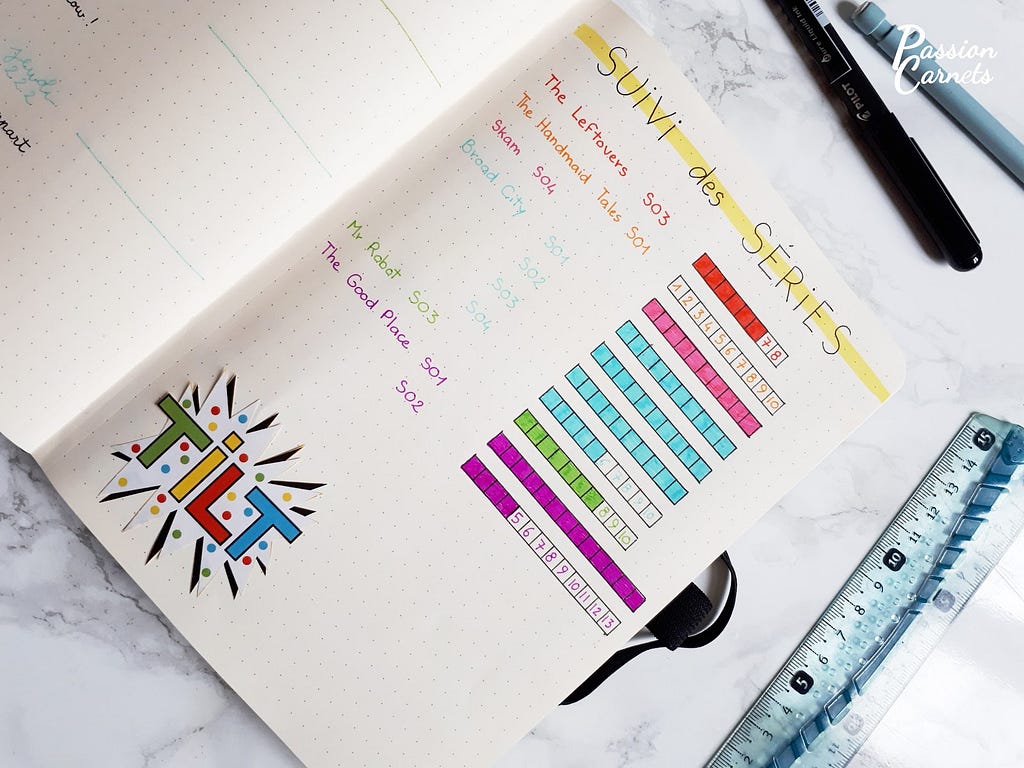 Passion
Carnets
PILOT
Pure Liquid Ink
Jeudi
SUIVI des SÉRIES
The Leftovers S03
7 8
The Handmaid Tales S01
1 2 3 4 5 6 7 8 9 10
Skam S04
Broad City S01
S02
S03
S04
6 7 8 9 10
Mr Robot S03
8 9 10
The Good Place S01
S02
5 6 7 8 9 10 11 12 13
TiLT
15 14 13 12 11 10 9 8 7 6 5 4 3 2